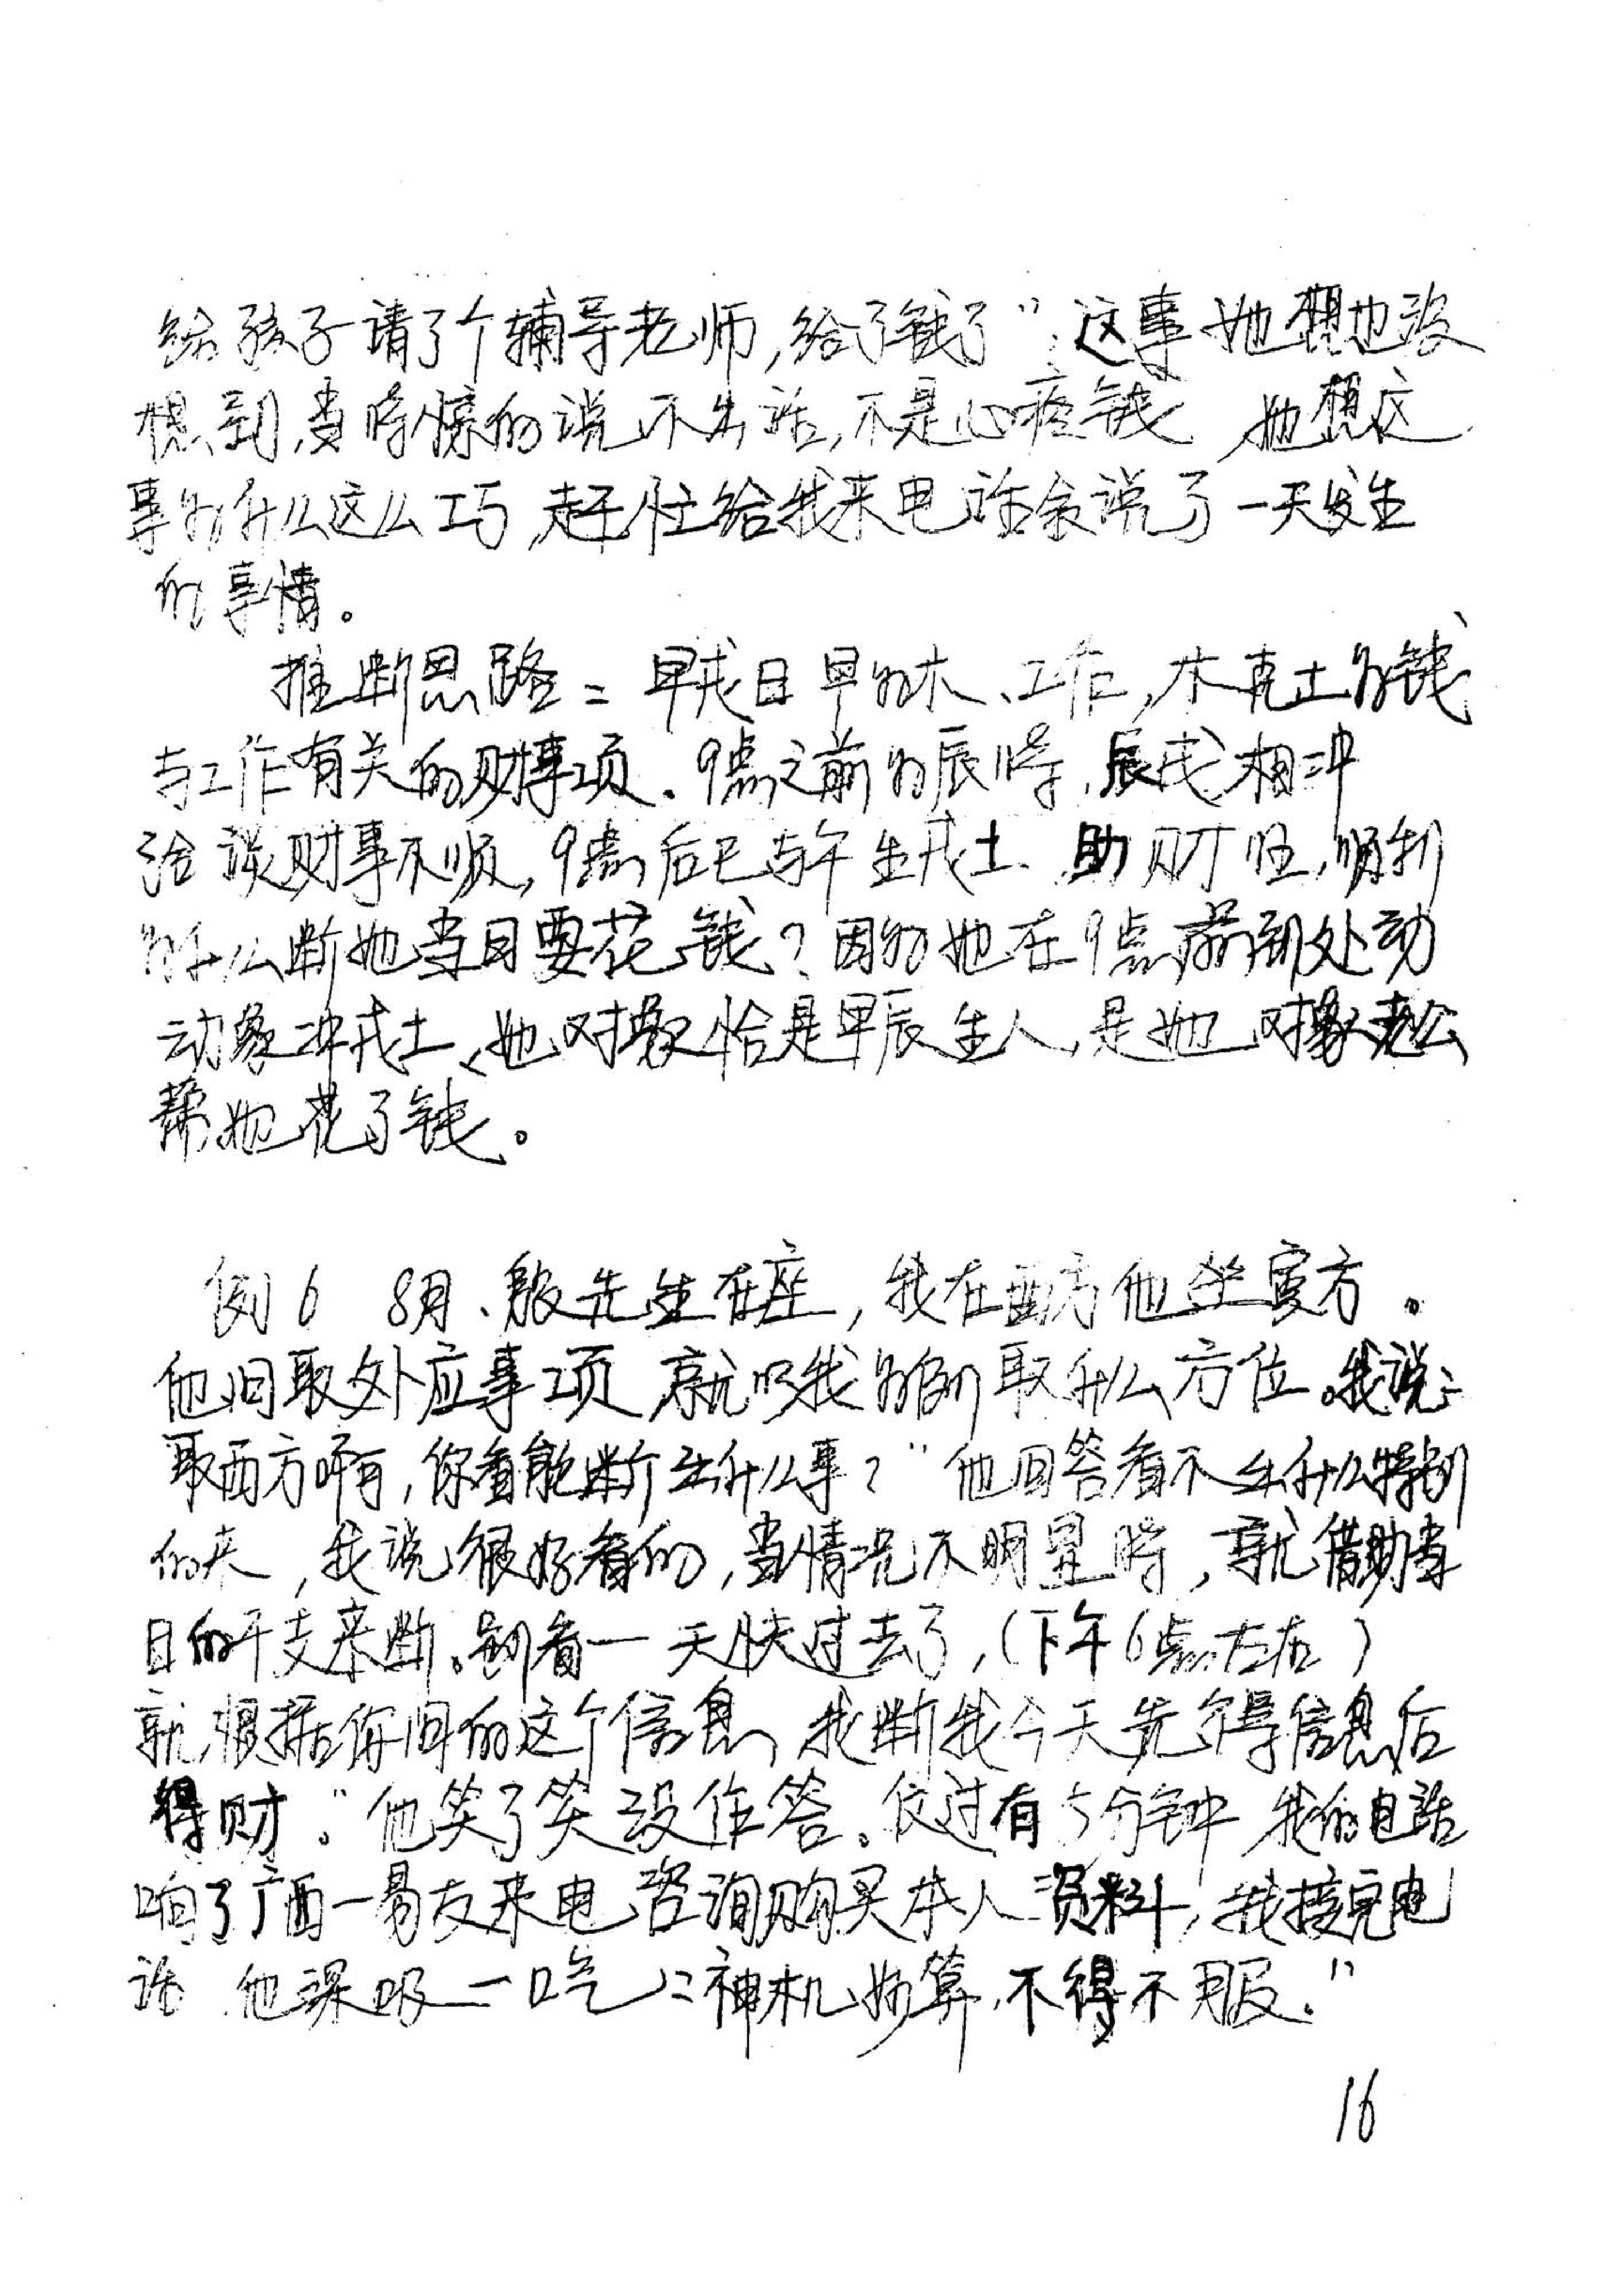 给孩子请了个辅导老师,给了钱了",这事她想也没
想到,当时惊的说不出话,不是心疼钱 她想这
事为什么这么巧,赶忙给我来电话 说了一天发生
的事情。
推断思路: 早戌日早为木、工作,木克土为钱
与工作有关的财事项.9点之前为辰时,辰戌相冲
洽谈财事不顺,9点后巳与午生戌土 助财旺,顺利
为什么断她当日要花钱?因为她在9点前到处动
动象冲戌土、她对象恰是早辰生人,是她对象老公
帮她花了钱。
例6 8月、殷先生在座,我在西方他坐 方。
他问取外应事项 就问我为例取什么方位。我说:
取西方啊,你看能断出什么事?"他回答看不出什么特别
的来,我说很好看的,当情况不明显时,就借助当
日的干支来断。别看一天快过去了,(下午6点左右)
就根据你问的这个信息,我断我今天先得信息后
得财。"他笑了笑没作答。仅过有5分钟 我的电话
响了广西一易友来电咨询购买本人资料,我接完电
话 他深吸一口气:"神机妙算,不得不服."
16